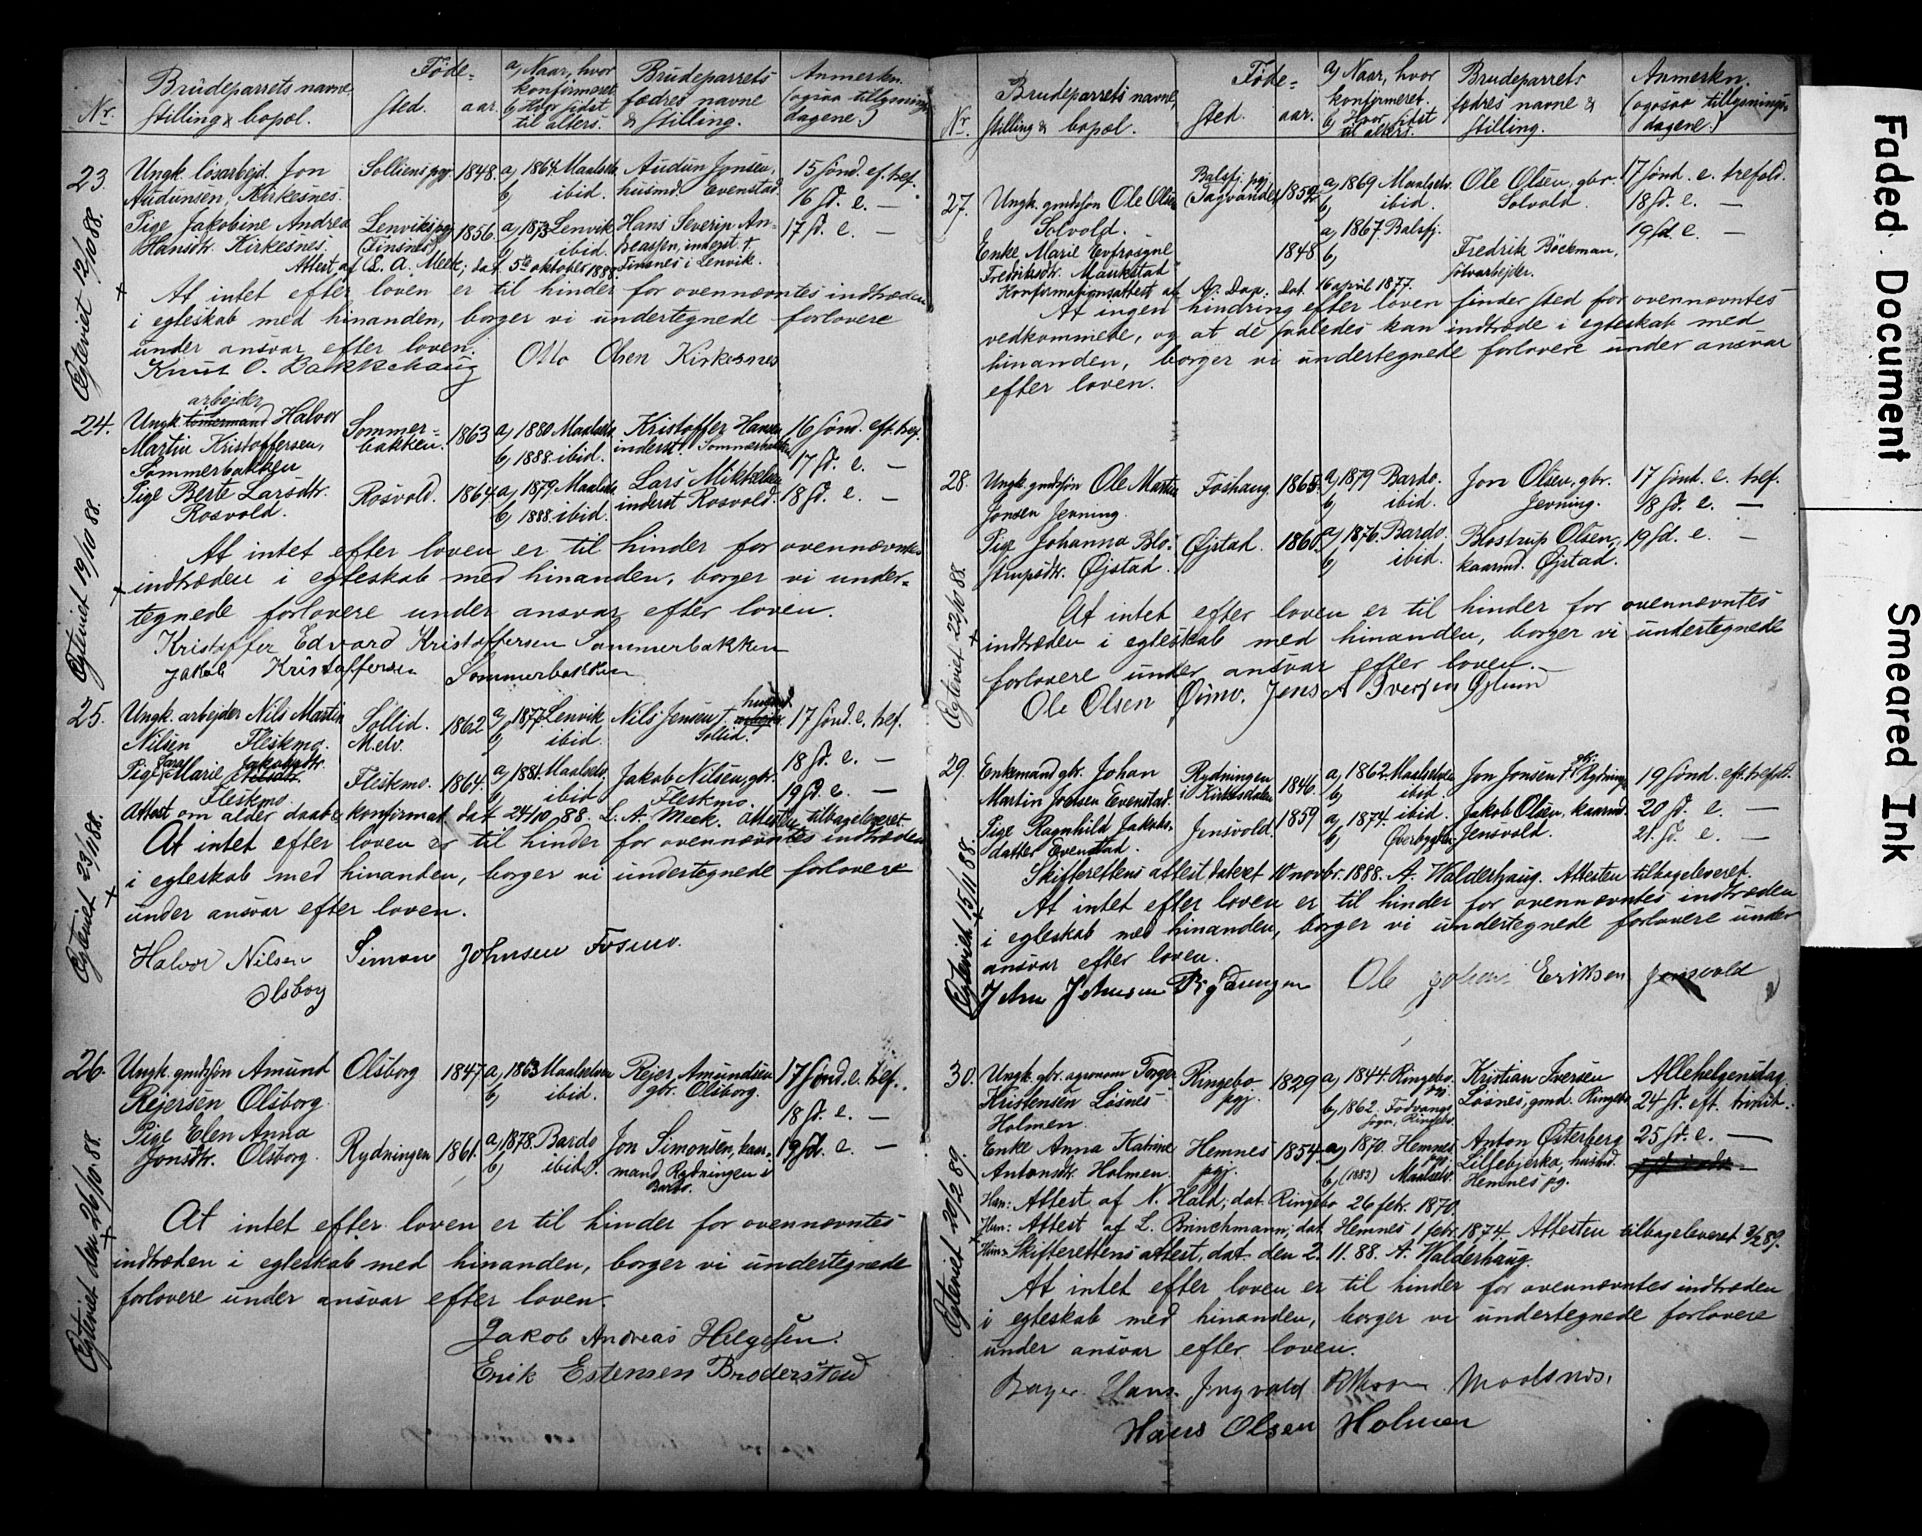 Nr. Brudeparrets navne, stilling & bopæl. Føde- sted. aar. a, Naar, hvor konfirmeret b, Hvor sidst til alters. Brudeparrets fædres navne & stilling. Anmerkn. (ogsaa tillysnings dagene.)
23. Ungk. løsarbejd. Jon Solliens pgj. 1848. a, 1864 Maalselv Audun Jonsen, 15 sønd. ef. tref.
Audunsen, Kirkesnes. b, ibid. husmd. Evenstad. 16 sd. e. —
Pige Jakobine Andrea Lenviks pgj 1856. a, 1873 Lenvik Hans Severin An- 17 sd. e. —
Hansdtr. Kirkesnes. (Finsnes) b, ibid. dreassen, inderst. †.
Attest af L. A. Meek; dat. 5te oktober 1888. Finsnes i Lenvik.
Ægteviet 12/10 88.
At intet efter loven er til hinder for ovennævntes indtræden
i egteskab med hinanden, borger vi undertegnede forlovere
under ansvar efter loven.
Knut O. Bakkehaug Otto Olsen Kirkesnes
arbejder
24. Ungk. tømermand Halvor Sommer- 1863 a, 1880 Maalselv Kristoffer Hansen 16 sønd. eft. tref.
Martin Kristoffersen, bakken. b, 1888. ibid. inderst. Sommerbakken 17 sd. e. —
Sommerbakken
Pige Berte Larsdtr. Rosvold. 1864 a, 1879 Maalselv Lars Mikkelsen 18 sd. e. —
Rosvold. b, 1888. ibid. inderst Rosvold.
Ægteviet 19/10 88.
At intet efter loven er til hinder for ovennævntes
indtræden i egteskab med hinanden, borger vi under-
tegnede forlovere under ansvar efter loven.
Kristoffer Edvard Kristoffersen Sommerbakken
Jakob Kristoffersen Sommerbakken
25. Ungk. arbejder Nils Martin Sollid. 1862 a, 1877 Lenvik Nils Jensen † husmd. 17 sønd. e. tref.
Nilsen Fleskmo. M.elv. b, ibid. Sollid. 18 sd. e. —
Pige Sara Marie Jakobsdtr. Nilsdtr. Fleskmo. 1864. a, 1881. Maalselv Jakob Nilsen, gbr. 19 sd. e. —
Fleskmo. b, ibid Fleskmo.
Attest om alder daab & konfirmat. dat. 24/10 88. L. A. Meek. Attesten tilbageleveret.
Ægteviet 23/11 88.
At intet efter loven er til hinder for ovennævntes indtræden
i egteskab med hinanden, borger vi undertegnede forlovere
under ansvar efter loven.
Halvor Nilsen Simon Johnsen Fosmo.
Olsborg
26. Ungk. gmdssøn Amund Olsborg 1847 a, 1863 Maalselven Rejer Amundsen 17 sønd. e. tref.
Rejersen Olsborg. b, ibid. gbr. Olsborg. 18 sd. e. —
Pige Elen Anna Rydningen 1861. a, 1878. Bardo Jon Simonsen, kaar- 19 sd. e. —
Jonsdtr. Olsborg. b, ibid. mand, Rydningen i
Bardo.
Ægteviet den 26/10 88.
At intet efter loven er til hinder for ovennævntes
indtræden i egteskab med hinanden, borger vi undertegnede
forlovere under ansvar efter loven.
Jakob Andreas Helgesen.
Erik Estensen Brodersted
Nr. Brudeparrets navne, stilling & bopæl. Føde- sted. aar. a, Naar, hvor konfirmeret. b, Hvor sidst til alters. Brudeparrets fædres navne & stilling. Anmerkn. (ogsaa tillysnings- dagene.)
27. Ungk. gmdssøn Ole Olsen Balsfj. pgj. (Tagvandet) 1852 a, 1869 Maalselv. Ole Olsen, gbr. 17 sønd. e. trefold.
Solvold. b, ibid. Solvold. 18 sd. e. —
Enke Marie Eufrosyne 1848 a, 1867. Balsfj. Fredrik Böckman, 19 sd. e. —
Fredriksdtr. Maukstad b, sølvarbejder.
Konfirmationsattest af Dat. 16 april 1877.
At ingen hindring efter loven finder sted for ovennævntes
vedkommede, og at de saaledes kan indtræde i egteskab med
hinanden, borger vi undertegnede forlovere under ansvar
efter loven.
28. Ungk. gmdssøn Ole Martin Foshaug. 1865. a, 1879 Bardo. Jon Olsen, gbr. 17 sønd. e. tref.
Jonsen Jerning. b, ibid. Jerning. 18 sd. e. —
Pige Johanna Blo- Øjstad. 1860. a, 1876. Bardo. Blostrup Olsen, 19 sd. e. —
strupsdtr. Øjstad. b, ibid. kaarmd. Øjstad.
Ægteviet 22/10 88.
At intet efter loven er til hinder for ovennævntes
indtræden i egteskab med hinanden, borger vi undertegnede
forlovere under ansvar efter loven. —
Ole Olsen Jens A Iversen
29. Enkemand gbr. Johan Rydningen 1846. a, 1862 Maalselven Jon Jonsen † gbr. Rydningen 19 sønd. eft. trefold.
Martin Jonsen Evenstad. i Kirkesdalen b, ibid. 20 sd. e. —
Pige Ragnhild Jakobs- Jensvold. 1859 a, 1874. ibid. Jakob Olsen, kaarmd. 21. sd. e. —
datter Evenstad. b, Øverbygden Jensvold.
Skifterettens attest, dateret 10 novbr. 1888. A. Walderhaug. Attesten tilbageleveret.
Ægteviet 15/11 88.
At intet efter loven er til hinder for ovennævntes indtræden
i egteskab med hinanden, borger vi undertegnede forlovere under
ansvar efter loven.
John Johnsen Rydningen Ole Johan Eriksen Jensvold
30. Ungk. gbr. agronom Torger Ringebo 1829 a, 1844. Ringebo. Kristian Iversen Allehelgensdag.
Kristensen Løsnes pgj. pgj. Løsnes, gmd. Ringebo 24 sd. eft. trinit.
Holmen. b, 1862. Fodvangs sogn, Ringebo.
Enke Anna Katrine Hemnes 1854 a, 1870. Hemnes pgj. Anton Østerberg 25 sd. e. —
Antonsdtr. Holmen. pgj. b, (1883) Maalselv. Lillebjerka, husmd.
Hemnes pg.
Han: Attest af N. Hald; dat. Ringebo 26 febr. 1870.
Hun: Attest af L. Brinchmann, dat. Hemnes 1 febr. 1874. Attesten tilbageleveret 3/2 89.
Hun: Skifterettens attest, dat. den 2. 11. 88. A. Walderhaug.
Ægteviet 20/2 89.
At intet efter loven er til hinder for ovennævntes indtræden
i egteskab med hinanden, borger vi undertegnede forlovere
under ansvar efter loven.
Hans Ingvald Moolsnes.
Hans Olsen Holmen
Faded Document
Smeared Ink